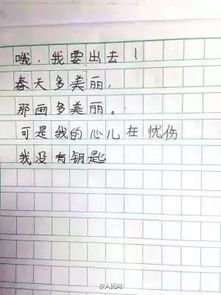 哦，我要出去！
春天多美丽，
那画多美丽。
可是我的心儿在忧伤
我没有钥匙
@人民网